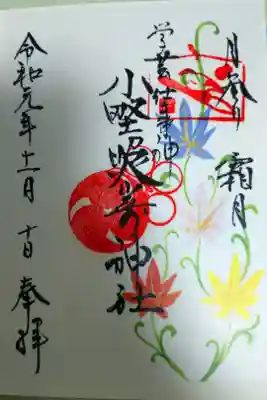 月参り
霜月
学芸仕事の神
小野照崎神社
令和元年十一月十日奉拝